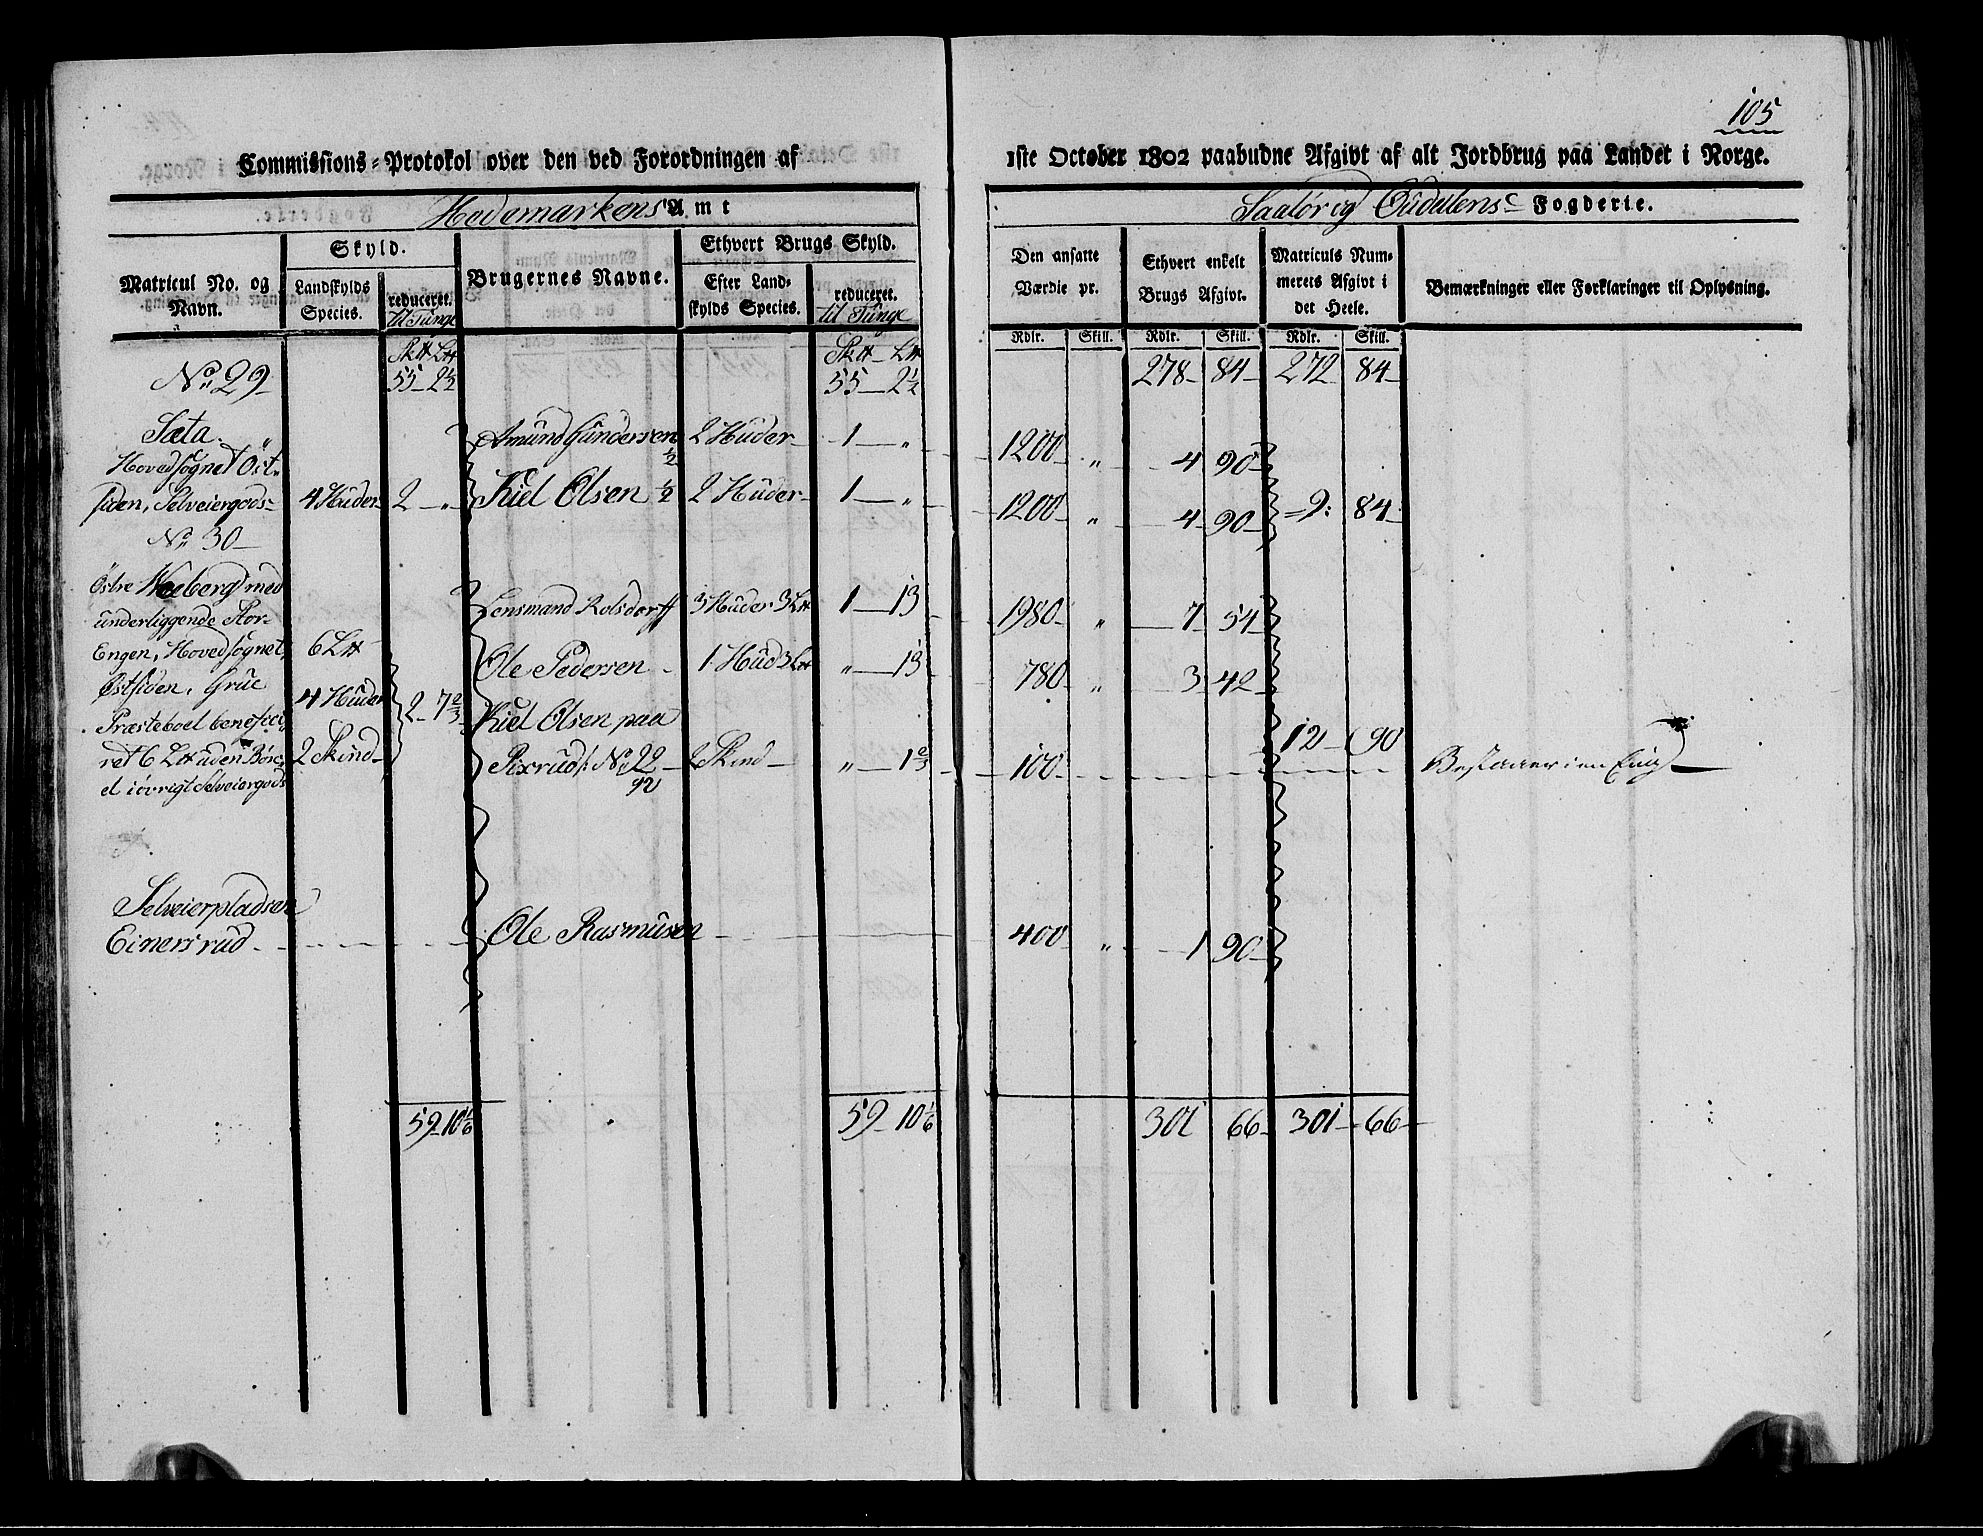 105
Commissions-Protokol over den ved Forordningen af 1ste October 1802 paabudne Afgivt af alt Jordbrug paa Landet i Norge.
Hedemarkens Amt
Fogderie.
Matricul No. og Navn.
Skyld.
Landskylds Species.
reduceret. til Tunge
Brugernes Navne.
Ethvert Brugs Skyld.
Efter Landskylds Species.
reduceret. til Tunge
Den ansatte Værdie pr.
Ethvert enkelt Brugs Afgivt.
Matriculs Nummerets Afgivt i det Heele.
Bemærkninger eller Forklaringer til Oplysning.
Rdlr. Skill. Rdlr. Skill. Rdlr. Skill.
No 29 55 2½ 55 2½ 278 84 272 84
Sæta.
Hovedsognet Øst-
siden, Selveiergods
4 Huder 2 „
Amund Gundersen ½ 2 Huder 1 „ 1200 „ 4 90
Kiel Olsen ½ 2 Huder 1 „ 1200 „ 4 90 9: 84
No 30
Østre Noeberg med
underliggende Stor-
Engen, Hovedsognet,
Østsiden, Grue
Præsteboel benefici-
ret 6 L# uden Bøx-
el i øvrigt Selveiergods
6 L#
4 Huder
2 Skind
2 7⅔
Lensmand Rolsdorff 3 Huder 3 L# 1 13 1980 „ 7 54
Ole Pedersen 1 Hud 3 L# „ 13 780 „ 3 42
Kiel Olsen paa
Pixrud No 22 2 Skind „ 1⅔ 100 12 90 Bestaaer i en Eng
92
Selveierpladsen
Einersrud Ole Rasmusen 400 „ 1 90
59 10⅙ 59 10⅙ 301 66 301 66